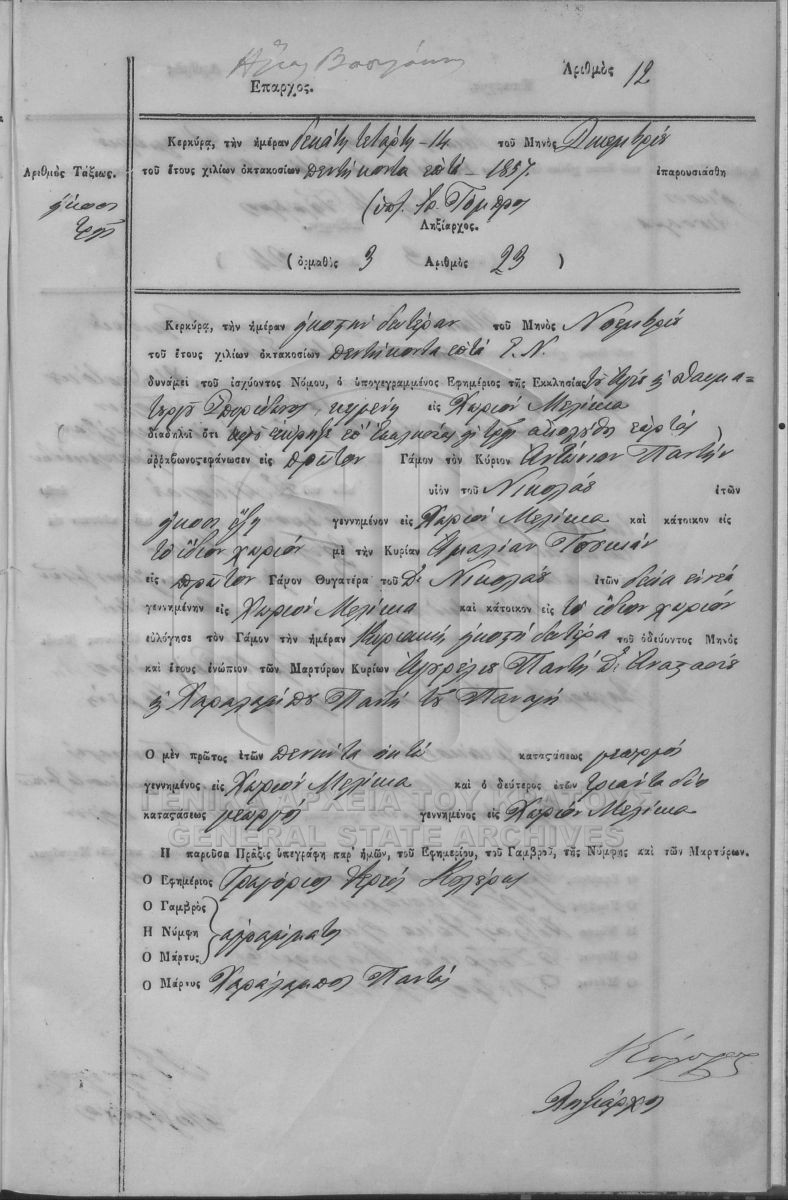 Ἀριθμὸς 12
Επαρχος.
Κερκύρα, τὴν ἡμέραν δεκάτη τετάρτη - 14 τοῦ Μηνὸς Δεκεμβρίου
Ἀριθμὸς Τάξεως.
τοῦ ἔτους χιλίων ὀκτακοσίων πεντήκοντα επτά - 1857. ἐπαρουσιάσθη
ήκοσι
τρία
(υπ.
Ληξίαρχος.
( ὁρμαθὸς 3 Ἀριθμὸς 23 )
Κερκύρα, τὴν ἡμέραν ηκοστήν δευτέραν τοῦ Μηνὸς Νοεμβρίου
τοῦ ἔτους χιλίων ὀκτακοσίων πεντήκοντα επτά Ε. Ν.
δυνάμει τοῦ ἰσχύοντος Νόμου, ὁ ὑπογεγραμμένος Εφημέριος τῆς Εκκλησίας τοῦ Αγίου ϗ θαυμα-
τουργού Σπυρίδωνος, κειμένη εἰς Χωρίον Μελίκια
διαδηλοῖ ὅτι
ἀῤῥαβωνοςεφάνωσεν εἰς πρώτον Γάμον τὸν Κύριον Αντώνιον Παντήν
υἱὸν τοῦ Νικολάου ἐτῶν
ήκοσι έξη γεννημένον εἰς Χωρίον Μελίκια καὶ κάτοικον εἰς
το ίδιον χωρίον μὲ τὴν Κυρίαν Αμαλίαν
εἰς πρώτον Γάμον Θυγατέρα τοῦ Νικολάου ἐτῶν δέκα εννεά
γεννημένην εἰς Χωρίον Μελίκια καὶ κάτοικον εἰς το ίδιον χωρίον
εὐλόγησε τὸν Γάμον τὴν ἡμέραν Κυριακή ηκοστή δευτέρα τοῦ ὁδεύοντος Μηνὸς
καὶ ἔτους ἐνώπιον τῶν Μαρτύρων Κυρίων Παντή Αναστασίου
ϗ Χαραλάμπου Παντή του Παναγή
Ο μὲν πρῶτος ἐτῶν πενήντα οκτώ κατας-άσεως γεωργός
γεννημένος εἰς Χωρίον Μελίκια καὶ ὁ δεύτερος ἐτῶν τριάντα δύο
κατας-άσεως γεωργός γεννημένος εἰς Χωρίον Μελίκια
ΓΕΝΙΚΑ ΑΡΧΕΙΑ ΤΟΥ ΚΡΑΤΟΥΣ
GENERAL STATE ARCHIVES
Η παροῦσα Πρᾶξις ὑπεγράφη παρ' ἡμῶν, τοῦ Εφημερίου, τοῦ Γαμβροῦ, τῆς Νύμφης καὶ τῶν Μαρτύρων.
Ο Εφημέριος Γρηγόριος Ιερεύς
Ο Γαμβρὸς
Η Νύμφη αγράμματοι
Ο Μάρτυς
Ο Μάρτυς Χαράλαμπος Παντής
Ληξίαρχος